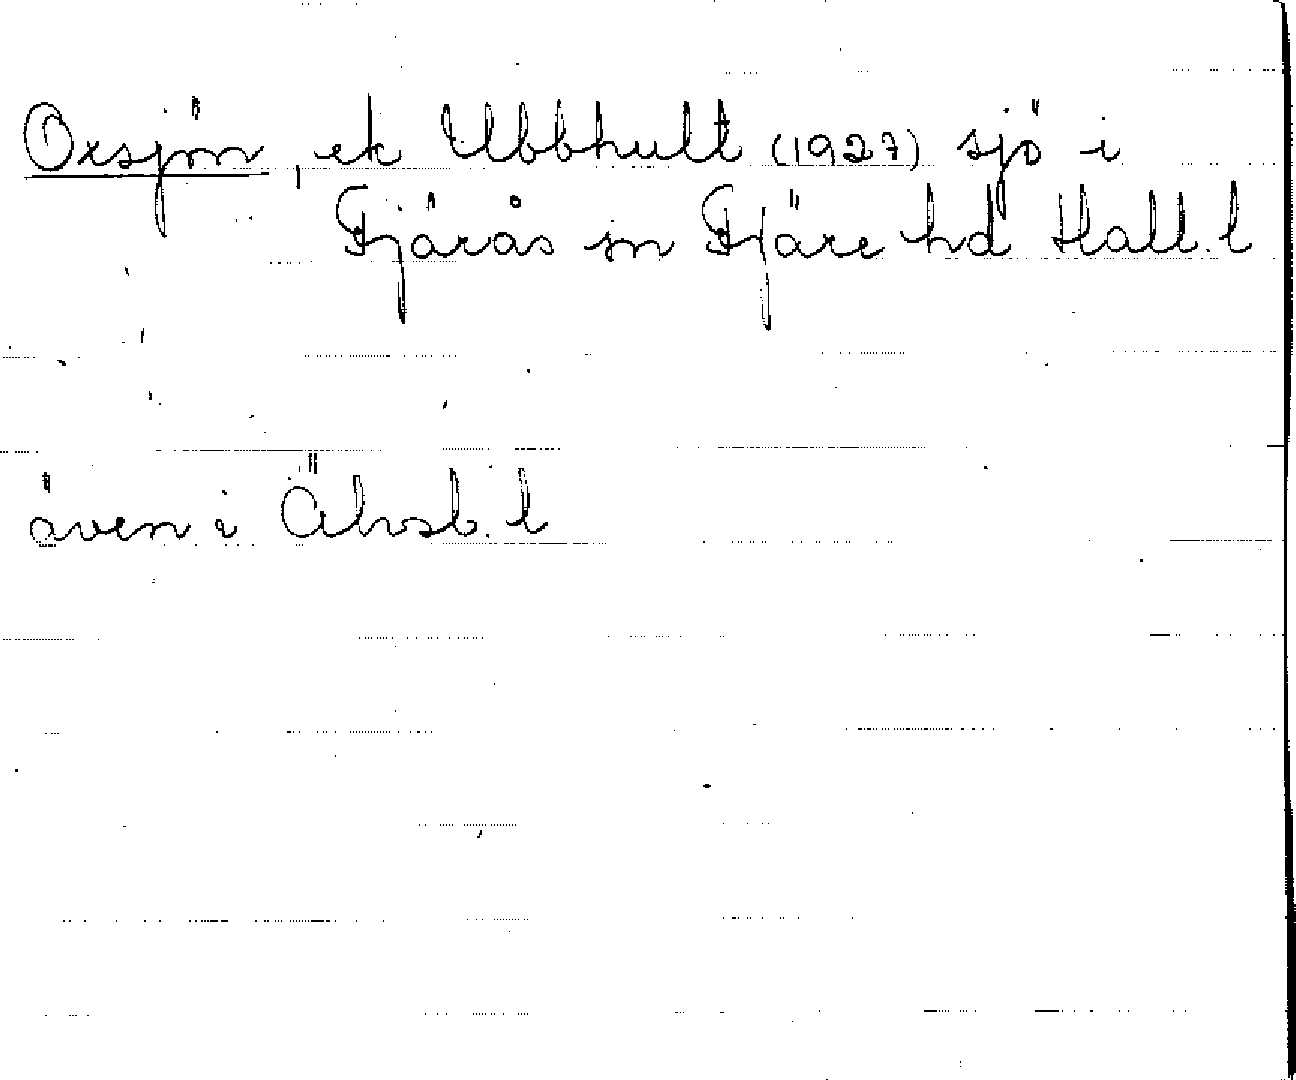 Oxsjön, ek Ubbhult (1927) sjö i
Fjärås sn Fjäre hd Hall. l
även i Älvsb. l